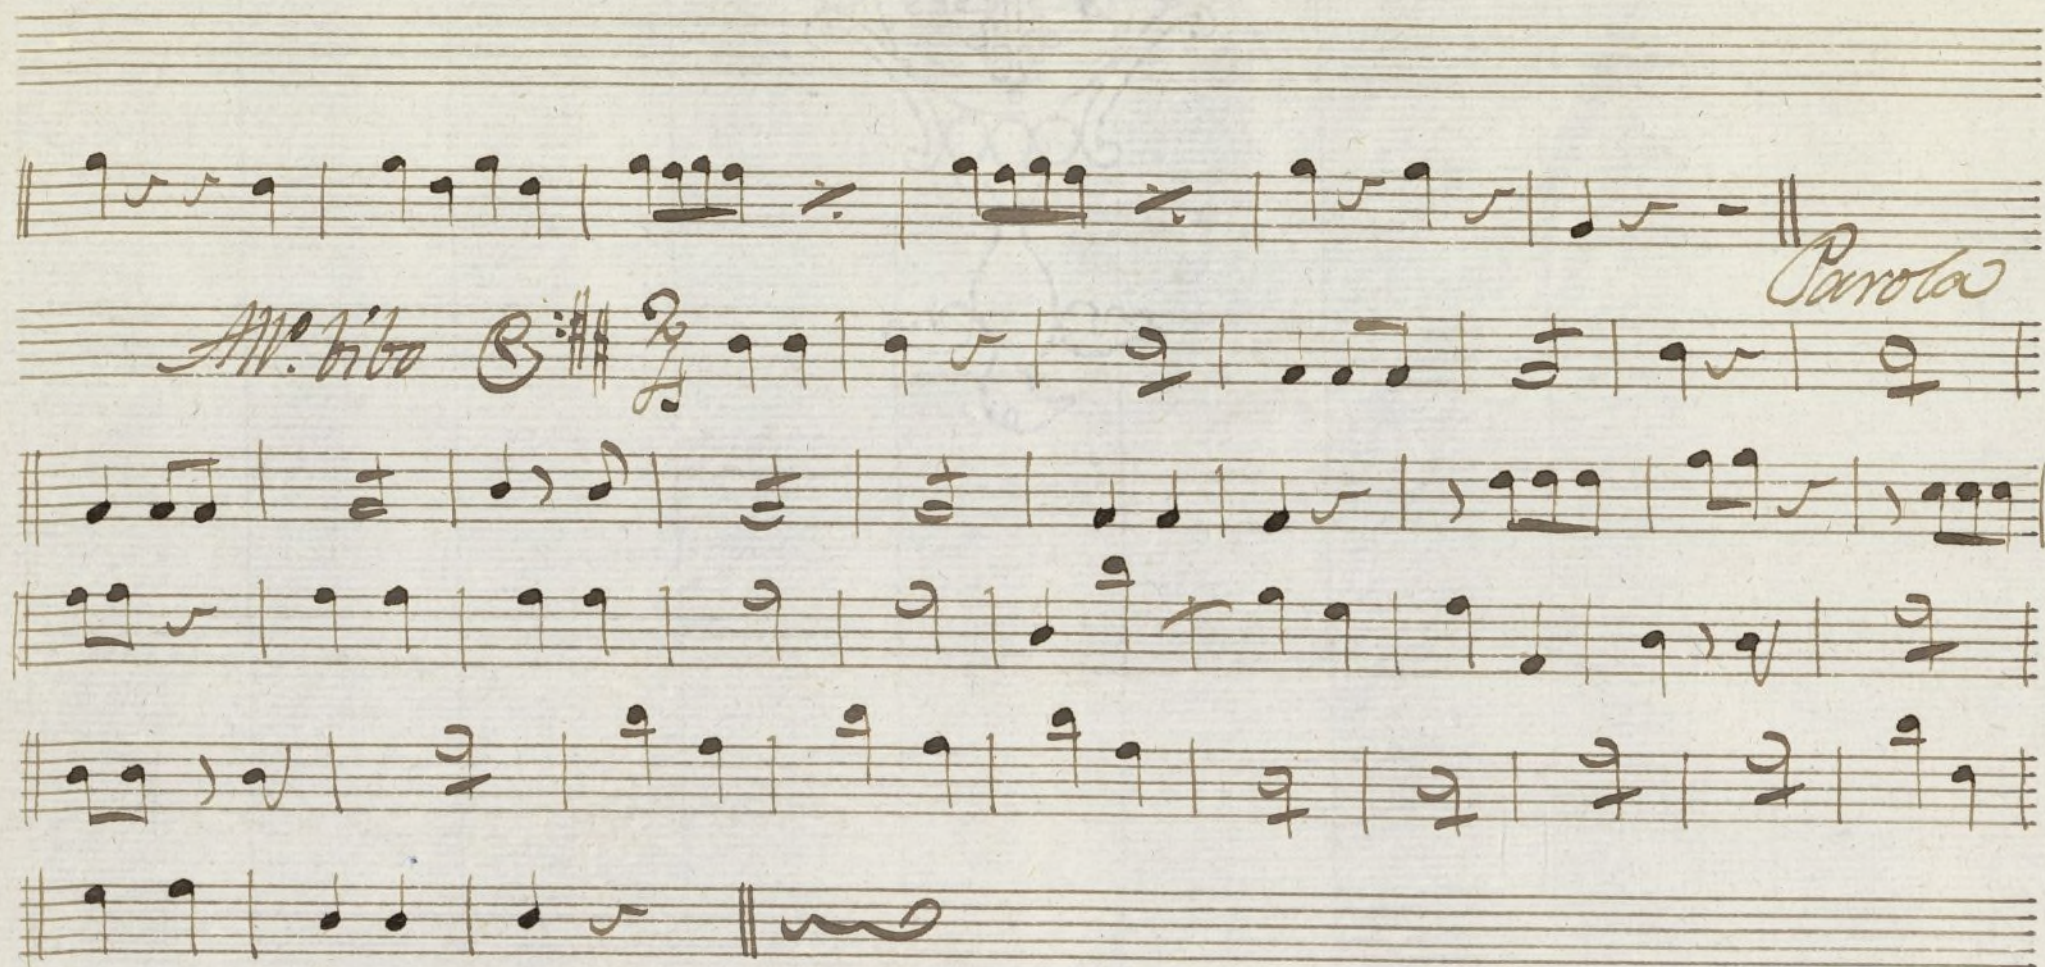 Parola
All.º bibo